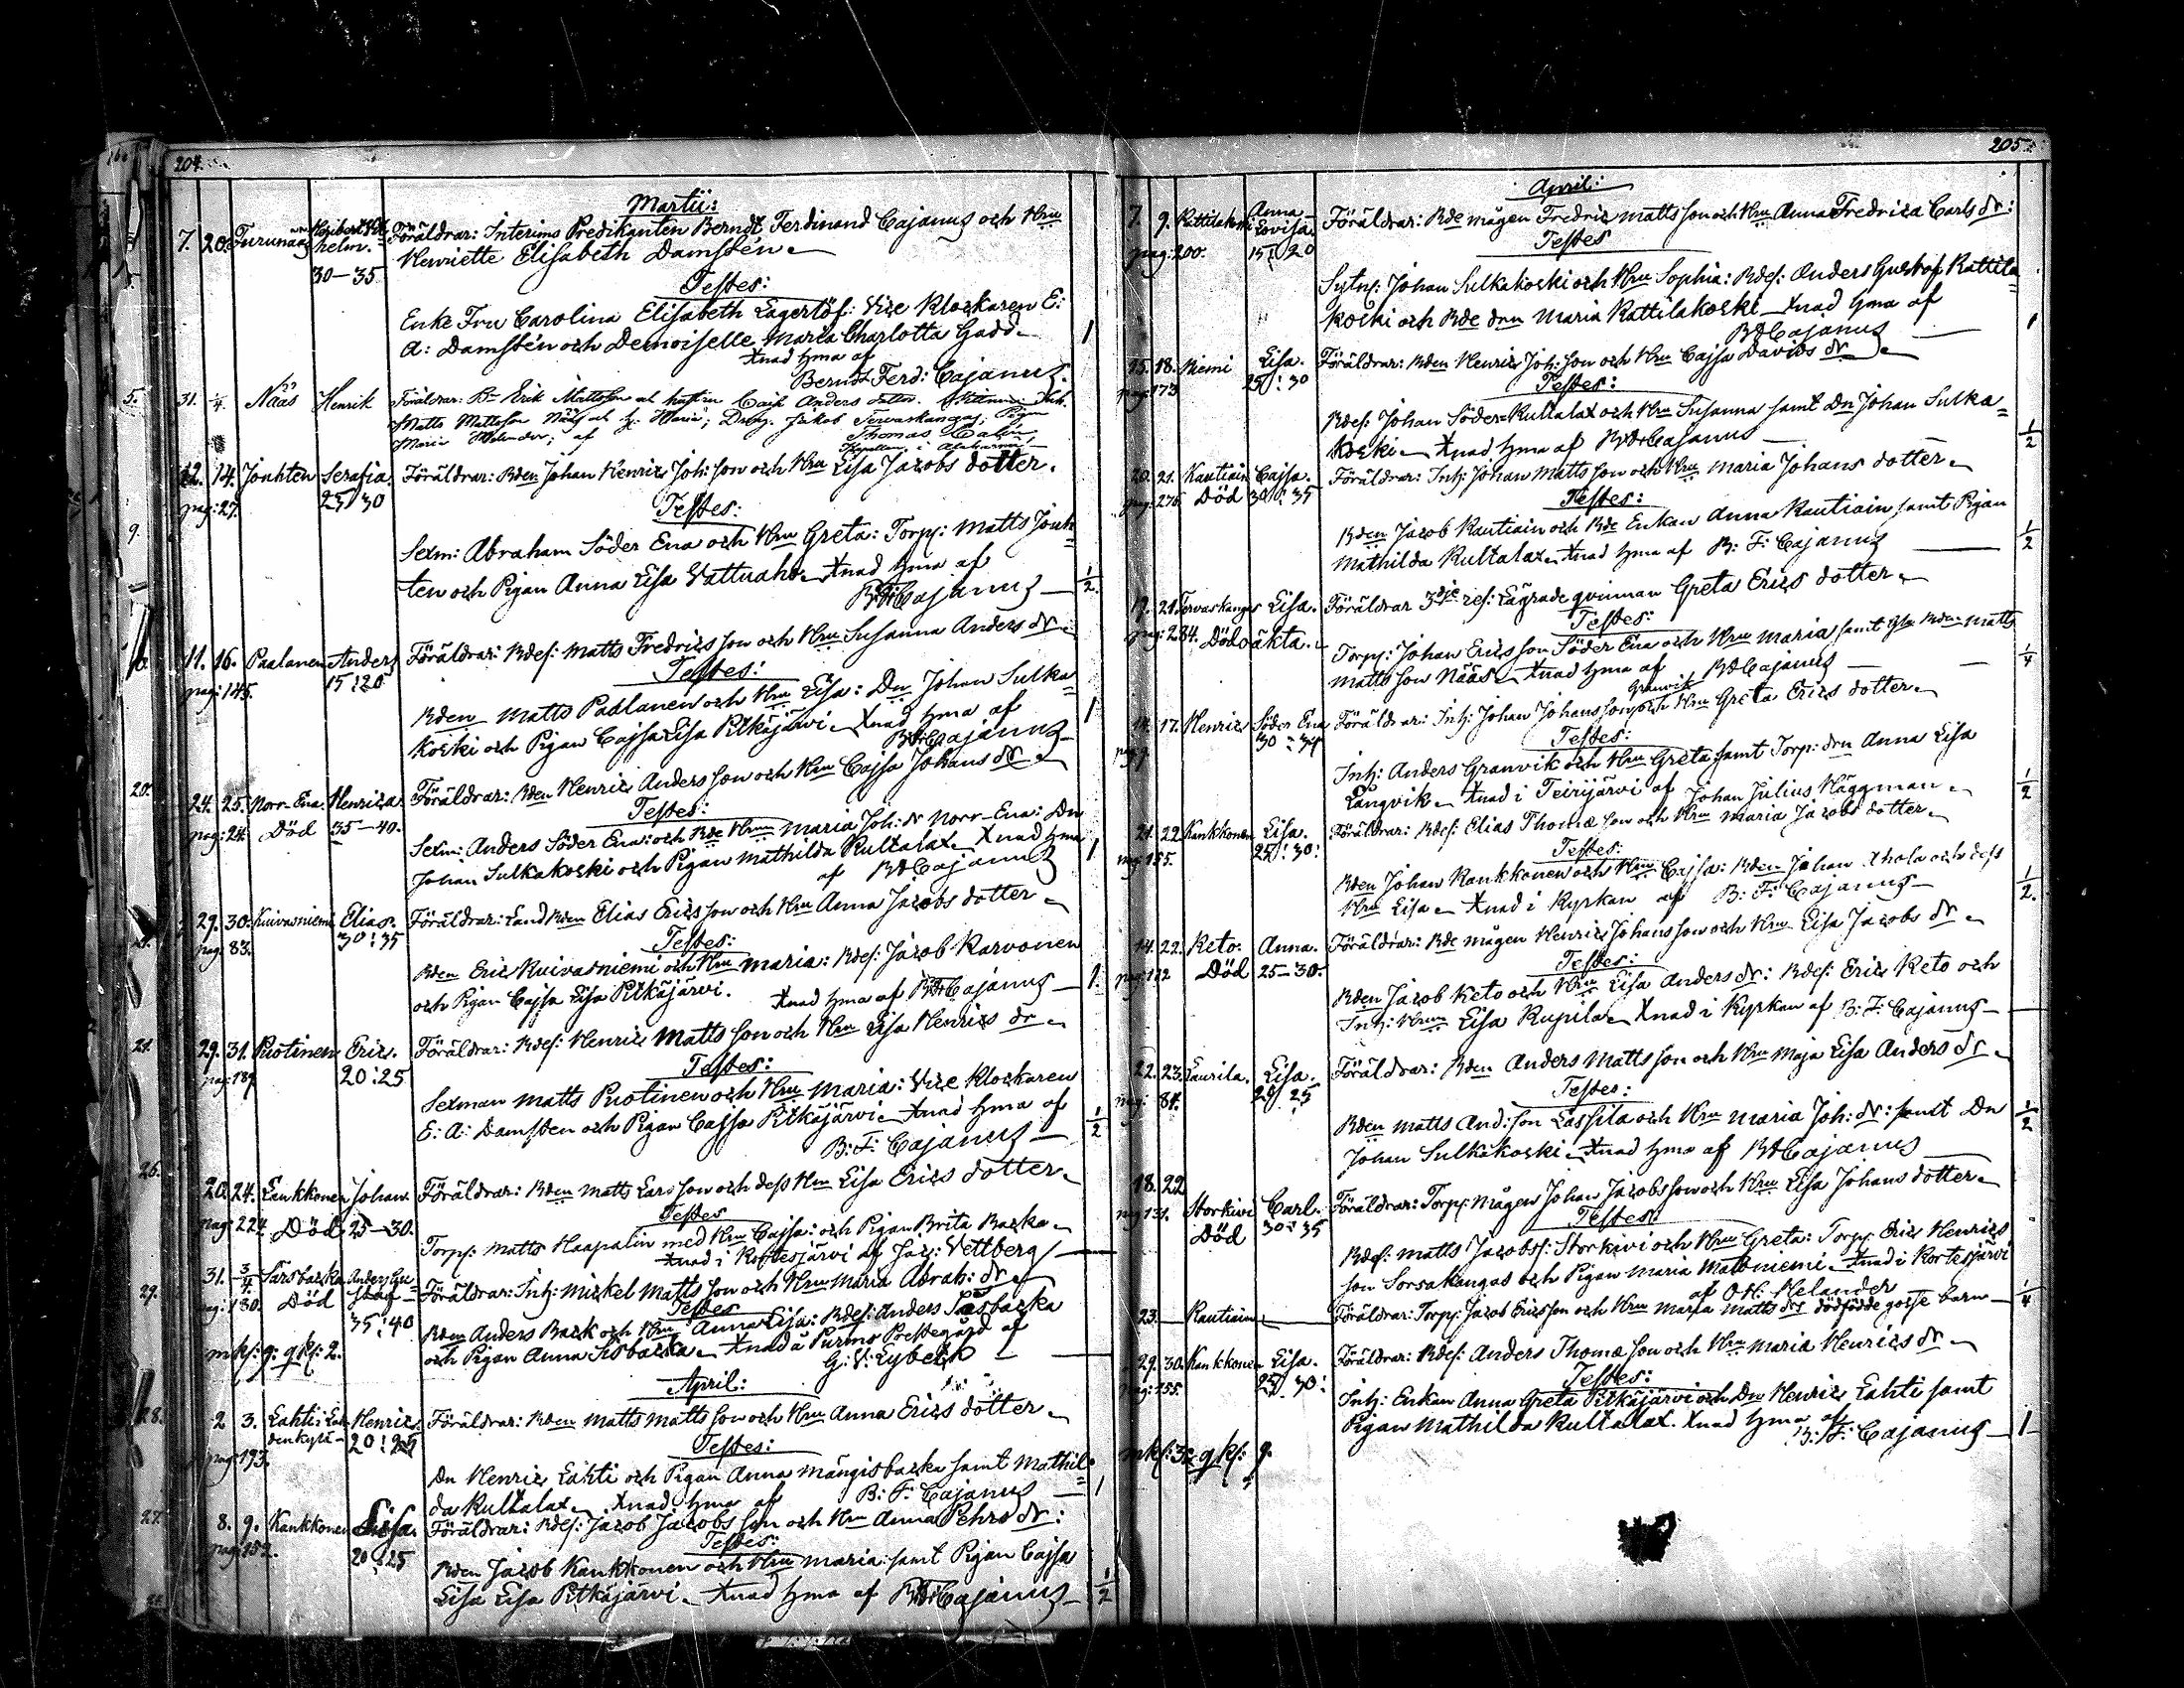 204.
Martii:
7. 20. Turunaas Heribert Wilhelm. 30–35 Föräldrar: Interims Predikanten Berndt Ferdinand Cajanus och Hru
Henriette Elisabeth Damstén
Testes:
Enke Fru Carolina Elisabeth Lagerlöf: Vice Klockaren E:
A: Damstén och Demoiselle Maria Charlotta Gadd.
Xnad hma af
Bernd Ferd: Cajanus 1
31. 1/4. Nääs Henrik Föräldrar: Erik Mattsson och hustrun Caisa Anders dotter.
Matts Mattsson Nääs och h. Maria; Dräng. Jakob Tervaskangas; Pigan
Maria; af Thomas
12. 14. Jonkten Serafia. Föräldrar: Bden Johan Henrics Joh: son och Hru Lisa Jacobs dotter.
pag: 27. 25/30
Testes:
Sexm: Abraham Söder Ena och Hru Greta: Torp: Matts Jonk=
ten och Pigan Anna Lisa Vattuaho Xnad hma af
B:F: Cajanus 1/2
11. 16. Paalanen Anders Föräldrar: Bdes: Matts Fredrics son och Hru Susanna Anders dr
pag: 145. 15:20
Testes:
Bden Matts Paalanen och Hru Lisa: Dn Johan Sulka=
koski och Pigan Cajsa Lisa Pitkäjärvi Xnad hma af
B:F: Cajanus 1
24. 25. Norr-Ena. Henrica Föräldrar: Bden Henric Anders son och Hru Cajsa Johans dr
pag: 24. Död 35–40.
Testes:
Sexm: Anders Söder Ena: och Bde Hrun Maria Joh: dr Norr-Ena: Dn
Johan Sulkakoski och Pigan Mathilda Kultalax Xnad hma
af B:F: Cajanus 1
29. 30. Kuivasniemi Elias. Föräldrar: Land Bden Elias Erics son och Hru Anna Jacobs dotter
pag: 83. 30:35
Testes:
Bden Eric Kuivasniemi och Hru Maria: Bdes: Jacob Karvonen
och Pigan Cajsa Lisa Pitkäjärvi. Xnad hma af B:F: Cajanus 1.
29. 31. Puotinen Eric. Föräldrar: Bdes: Henric Matts son och Hru Lisa Henrics dr
pag: 189 20:25
Testes:
Sexman Matts Puotinen och Hru Maria: Vice Klockaren
E: A: Damsten och Pigan Cajsa Pitkäjärvi Xnad hma af
B: F: Cajanus 1/2
20. 24. Lankkonen Johan. Föräldrar: Bden Matts Lars son och dess Hru Lisa Erics dotter
pag: 224. Död 25–30.
Testes
Torp: Matts Haapalin med Hru Cajsa: och Pigan Brita Backa
Xnad i Kortesjärvi af Jac: Vettberg
31. 3/4 Särsbacka Anders Gustaf Föräldrar: Inh: Mickel Matts son och Hru Maria Abrah: dr
pag: 130. Död 35:40
Testes
Bden Anders Back och Hru Anna Lisa: Bdes: Anders Särsbacka
och Pigan Anna Sisbacka Xnad å Purmo Prestegård af
G: V: Eybeck
mks: 9: qks: 2.
April:
2 3. Lahti: Henric. Föräldrar: Bden Matts Matts son och Hru Anna Erics dotter
pag: 193. 20:25
Testes:
Dn Henric Lahti och Pigan Anna Mångisbacka samt Mathil=
da Kultalax Xnad hma af B: F: Cajanus 1
8. 9. Kankkonen Lisa. Föräldrar: Bdes: Jacob Jacobs son och Hru Anna Pehrs dr:
pag: 152. 20:25
Testes:
Bden Jacob Kankkonen och Hru Maria: samt Pigan Cajsa
Lisa Lisa Pitkäjärvi Xnad hma af B:F: Cajanus 1/2
205
April:
7. 9. Rättilakoski Anna Lovisa Föräldrar: Bde mågen Fredric Matts son och Hru Anna Fredrica Carls dr:
pag: 200. 15:20
Testes
Sytn: Johan Sulkakoski och Hru Sophia: Bdes: Anders Gustaf Rättila=
koski och Bde drn Maria Rättilakoski Xnad hma af
B:F: Cajanus 1
15. 18. Niemi Lisa. Föräldrar: Bden Henric Joh: son och Hru Cajsa Davids dr
pag: 173 25:30
Testes:
Bdes: Johan Söder-Kultalax och Hru Susanna samt Dn Johan Sulka=
koski Xnad hma af B:F: Cajanus 1/2
20. 21. Rautiain Cajsa. Föräldrar: Inh: Johan Matts son och Hru Maria Johans dotter
pag: 276 Död 30:35
Testes:
Bden Jacob Rautiain och Bde Enkan Anna Rautiain samt Pigan
Mathilda Kultalax Xnad hma af B: F: Cajanus 1/2
19. 21. Tervaskangas Lisa. Föräldrar 3dje res: Lägrade qvinnan Greta Erics dotter
pag: 284. Död oäkta.
Testes:
Torp: Johan Erics son Söder Ena och Hru Maria samt Bden Matts
Matts son Nääs Xnad hma af B:F: Cajanus 1/4
14. 17. Henric Söder Ena Föräldrar: Inh: Johan Johans son Granvik och Hru Greta Erics dotter
30:34
Testes:
Inh: Anders Granvik och Hru Greta samt Torp: drn Anna Lisa
Långvik Xnad i Teirijärvi af Johan Julius Häggman 1/2
21. 22. Kankkonen Lisa. Föräldrar: Bdes: Elias Thomæ son och Hru Maria Jacobs dotter
pag: 155. 25:30:
Testes:
Bden Johan Kankkonen och Hru Cajsa: Bden Johan Ahola och dess
Hru Lisa Xnad i Kyrkan af B: F: Cajanus 1/2.
14. 22. Keto: Anna. Föräldrar: Bde mågen Henric Johans son och Hru Lisa Jacobs dr
pag: 112 Död 25–30.
Testes:
Bden Jacob Keto och Hru Lisa Anders dr: Bdes: Eric Keto och
Inh: Hrun Lisa Rupila Xnad i Kyrkan af B: F: Cajanus
22. 23. Laurila. Lisa. Föräldrar: Bden Anders Matts son och Hru Maja Lisa Anders dr
pag: 84. 20/25
Testes:
Bden Matts And: son Lassila och Hru Maria Joh: dr: samt Dn
Johan Sulkakoski Xnad hma af B:F: Cajanus 1/2
18. 22 Storkivi Carl. Föräldrar: Torp: mågen Johan Jacobs son och Hru Lisa Johans dotter
pag 131. Död 30:35
Testes:
Bdes: Matts Jacobs: Storkivi och Hru Greta: Torp: Eric Henrics
son Sorsakangas och Pigan Maria Mattoniemi Xnad i Kortesjärvi
af O:H: Helander
23. Rautiain Föräldrar: Torp: Jacob Erics son och Hru Maria Matts drs dödfödde gosse barn 1/4
29. 30. Kankkonen Lisa. Föräldrar: Bdes: Anders Thomæ son och Hru Maria Henrics dr
pag: 155. 25 30:
Testes:
Inh: Enkan Anna Greta Pitkäjärvi och Dn Henric Lahti samt
Pigan Mathilda Kultalax. Xnad hma af
B: F: Cajanus 1
mks: 3: qks: 9.